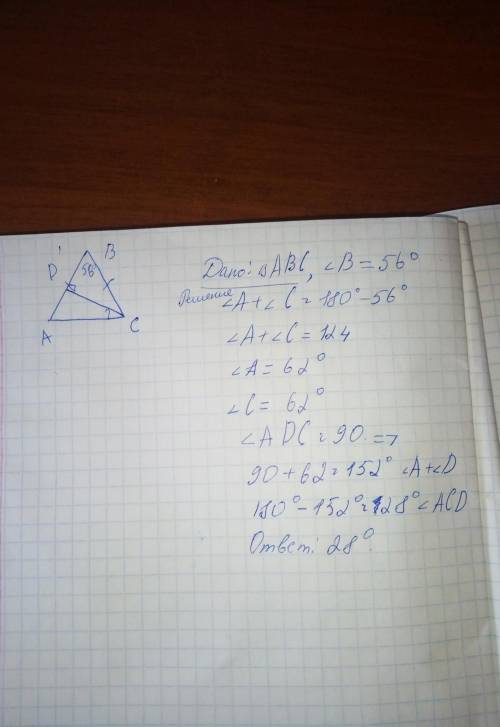 B
D
56°
A
C
Дано: △ABC, ∠B = 56°
Решение
∠A + ∠C = 180° - 56°
∠A + ∠C = 124
∠A = 62°
∠C = 62°
∠ADC = 90. =>
90 + 62 = 152° ∠A + ∠D
180° - 152° = 128° ∠ACD
Ответ: 28°.